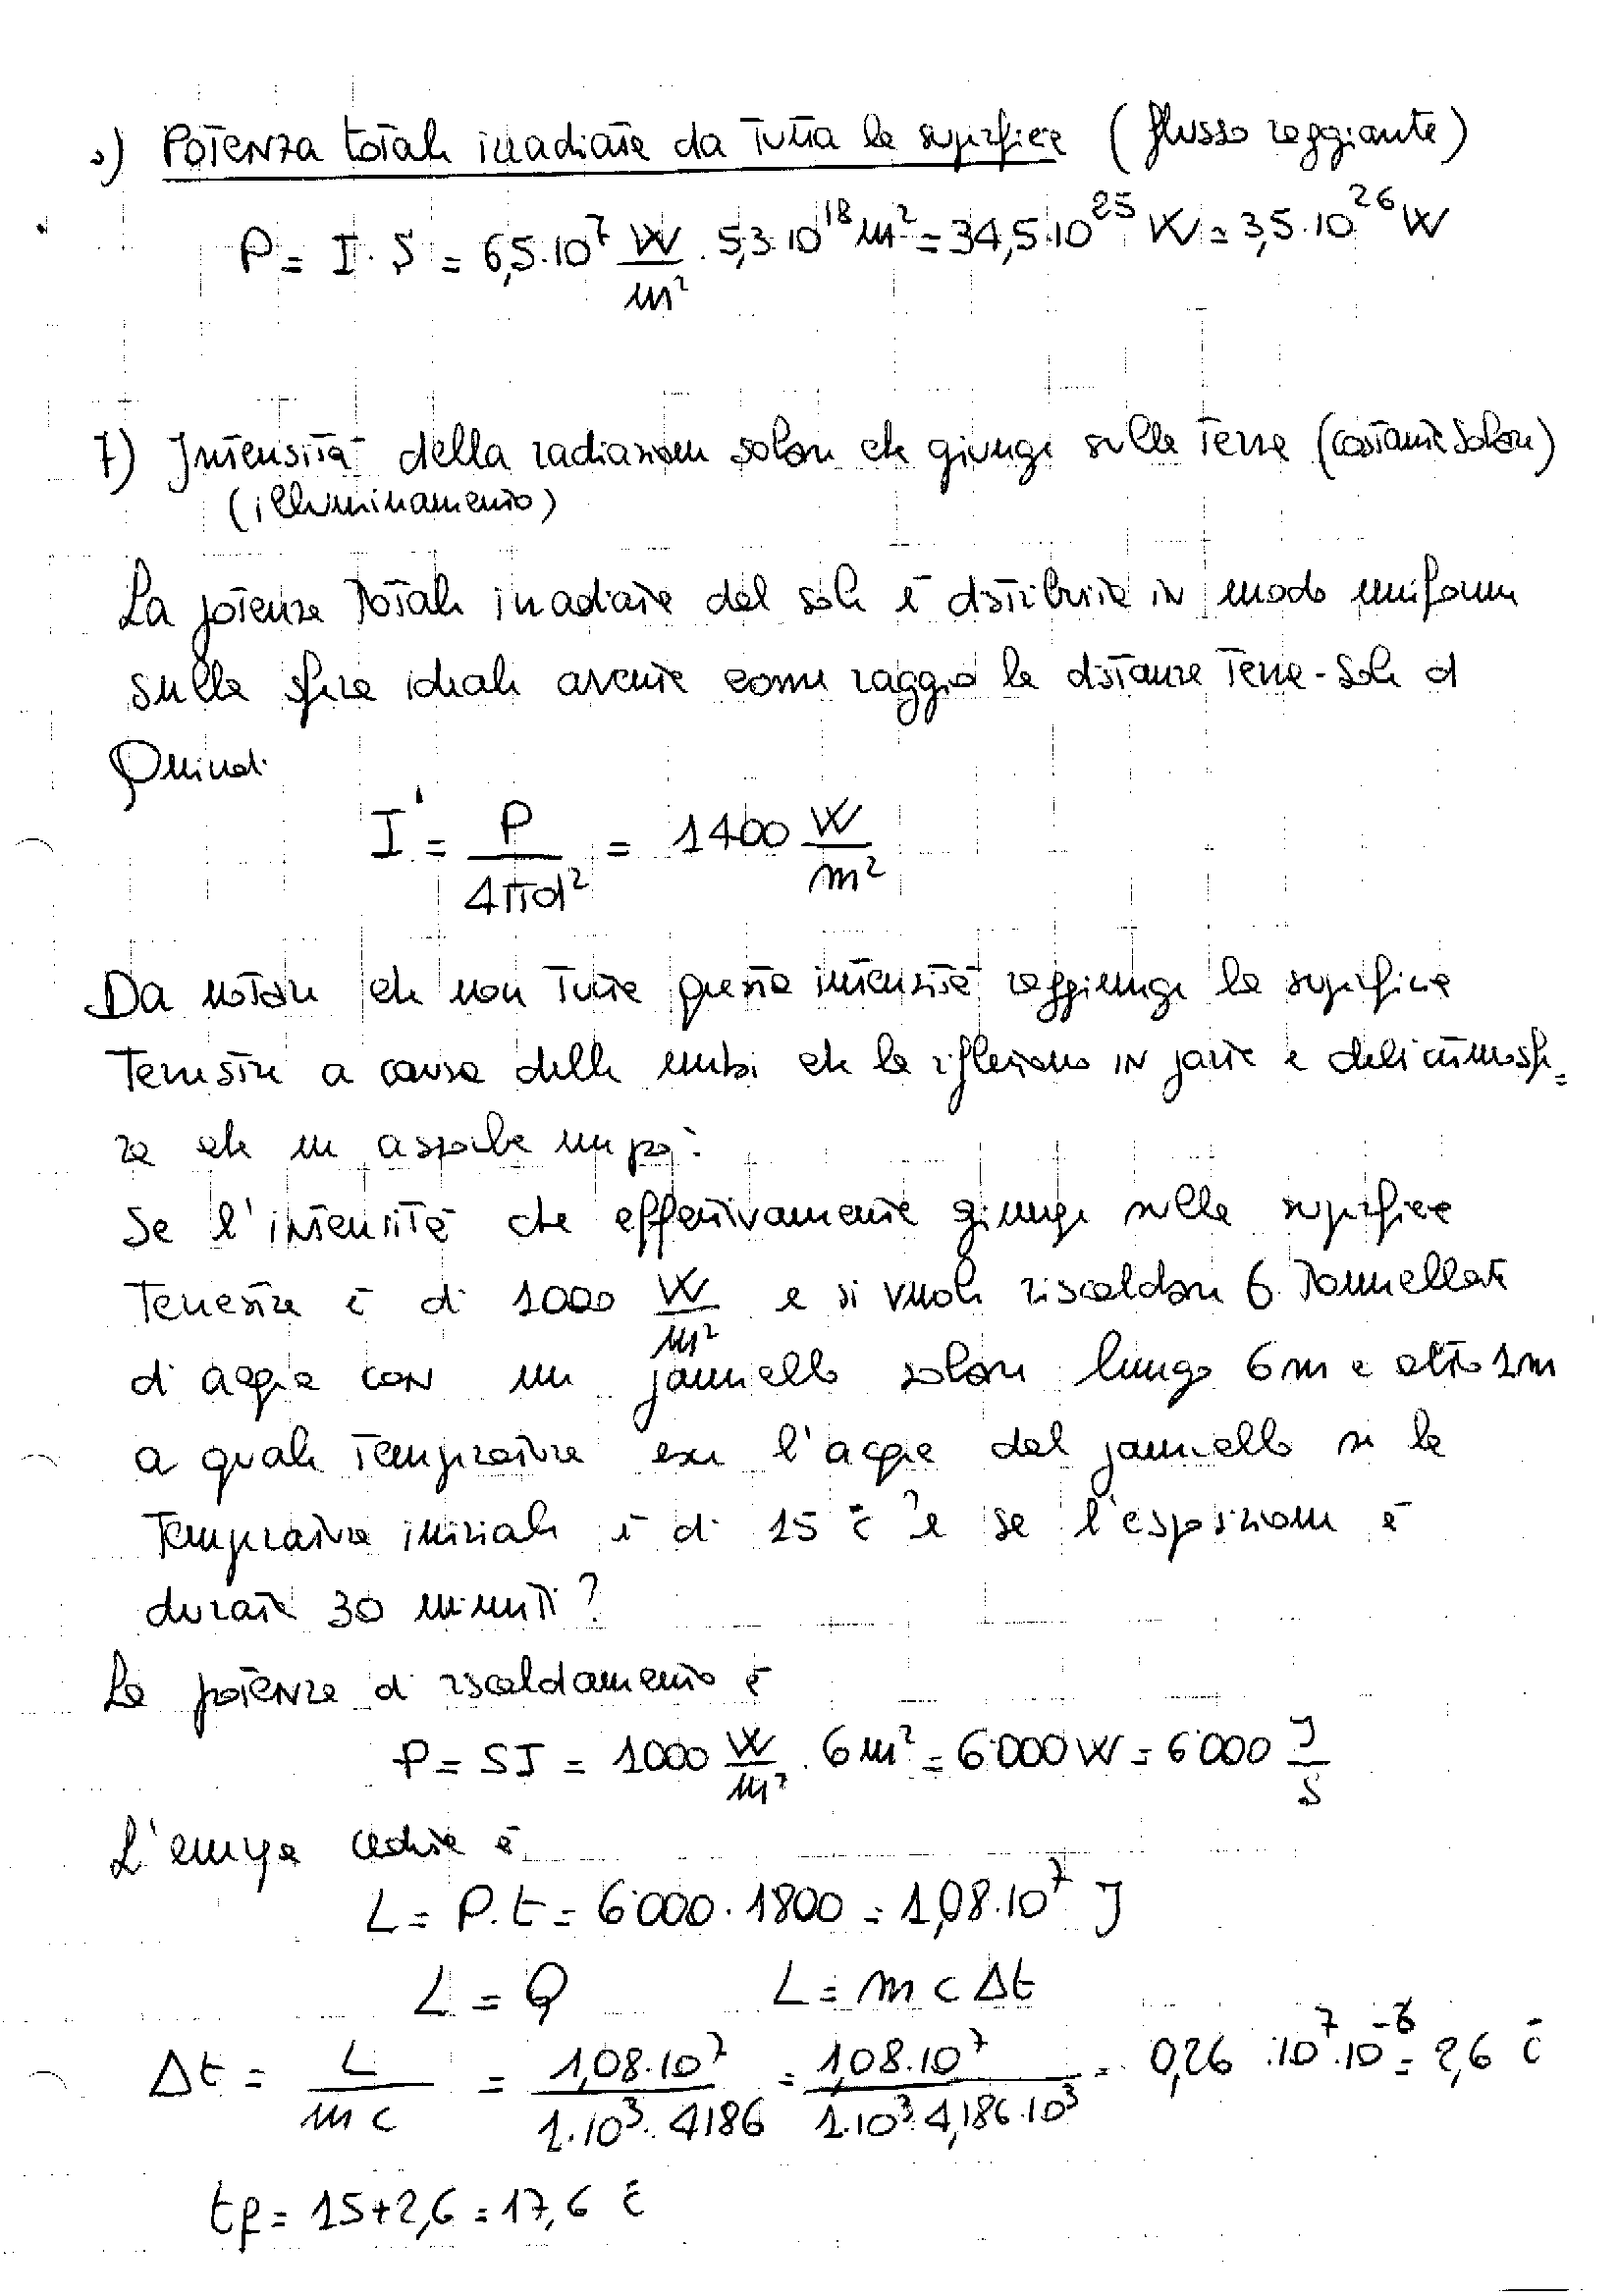 ) Potenza totale irradiata da tutta la superficie (flusso raggiante)
P = I · S = 6,5·10⁷ W/m² · 5,3·10¹⁸ m² = 34,5·10²⁵ W = 3,5·10²⁶ W
7) Intensità della radiazione solare che giunge sulla Terra (costante solare)
(illuminamento)
La potenza totale irradiata dal sole è distribuita in modo uniforme
sulla sfera ideale avente come raggio la distanza Terra-Sole d
Quindi
I' = P/4πd² = 1400 W/m²
Da notare che non tutta questa intensità raggiunge la superficie
Terrestre a causa delle nubi che la riflettono in parte e dell'atmosfe=
ra che ne assorbe un po'.
Se l'intensità che effettivamente giunge sulla superficie
Terrestre è di 1000 W/m² e si vuole riscaldare 6 Tonnellate
di acqua con un pannello solare lungo 6m e alto 1m
a quale Temperatura esce l'acqua dal pannello se la
Temperatura iniziale è di 15 °C ? e se l'esposizione è
durata 30 minuti?
La potenza di riscaldamento è
P = SI = 1000 W/m² · 6 m² = 6'000 W = 6'000 J/s
L'energia ceduta è
L = P·t = 6'000 · 1800 = 1,08·10⁷ J
L = Q L = m c Δt
Δt = L/mc = 1,08·10⁷/1·10³·4186 = 1,08·10⁷/1·10³·4,186·10³ = 0,26 ·10⁷·10⁻⁶ = 2,6 °C
tf = 15+2,6 = 17,6 °C